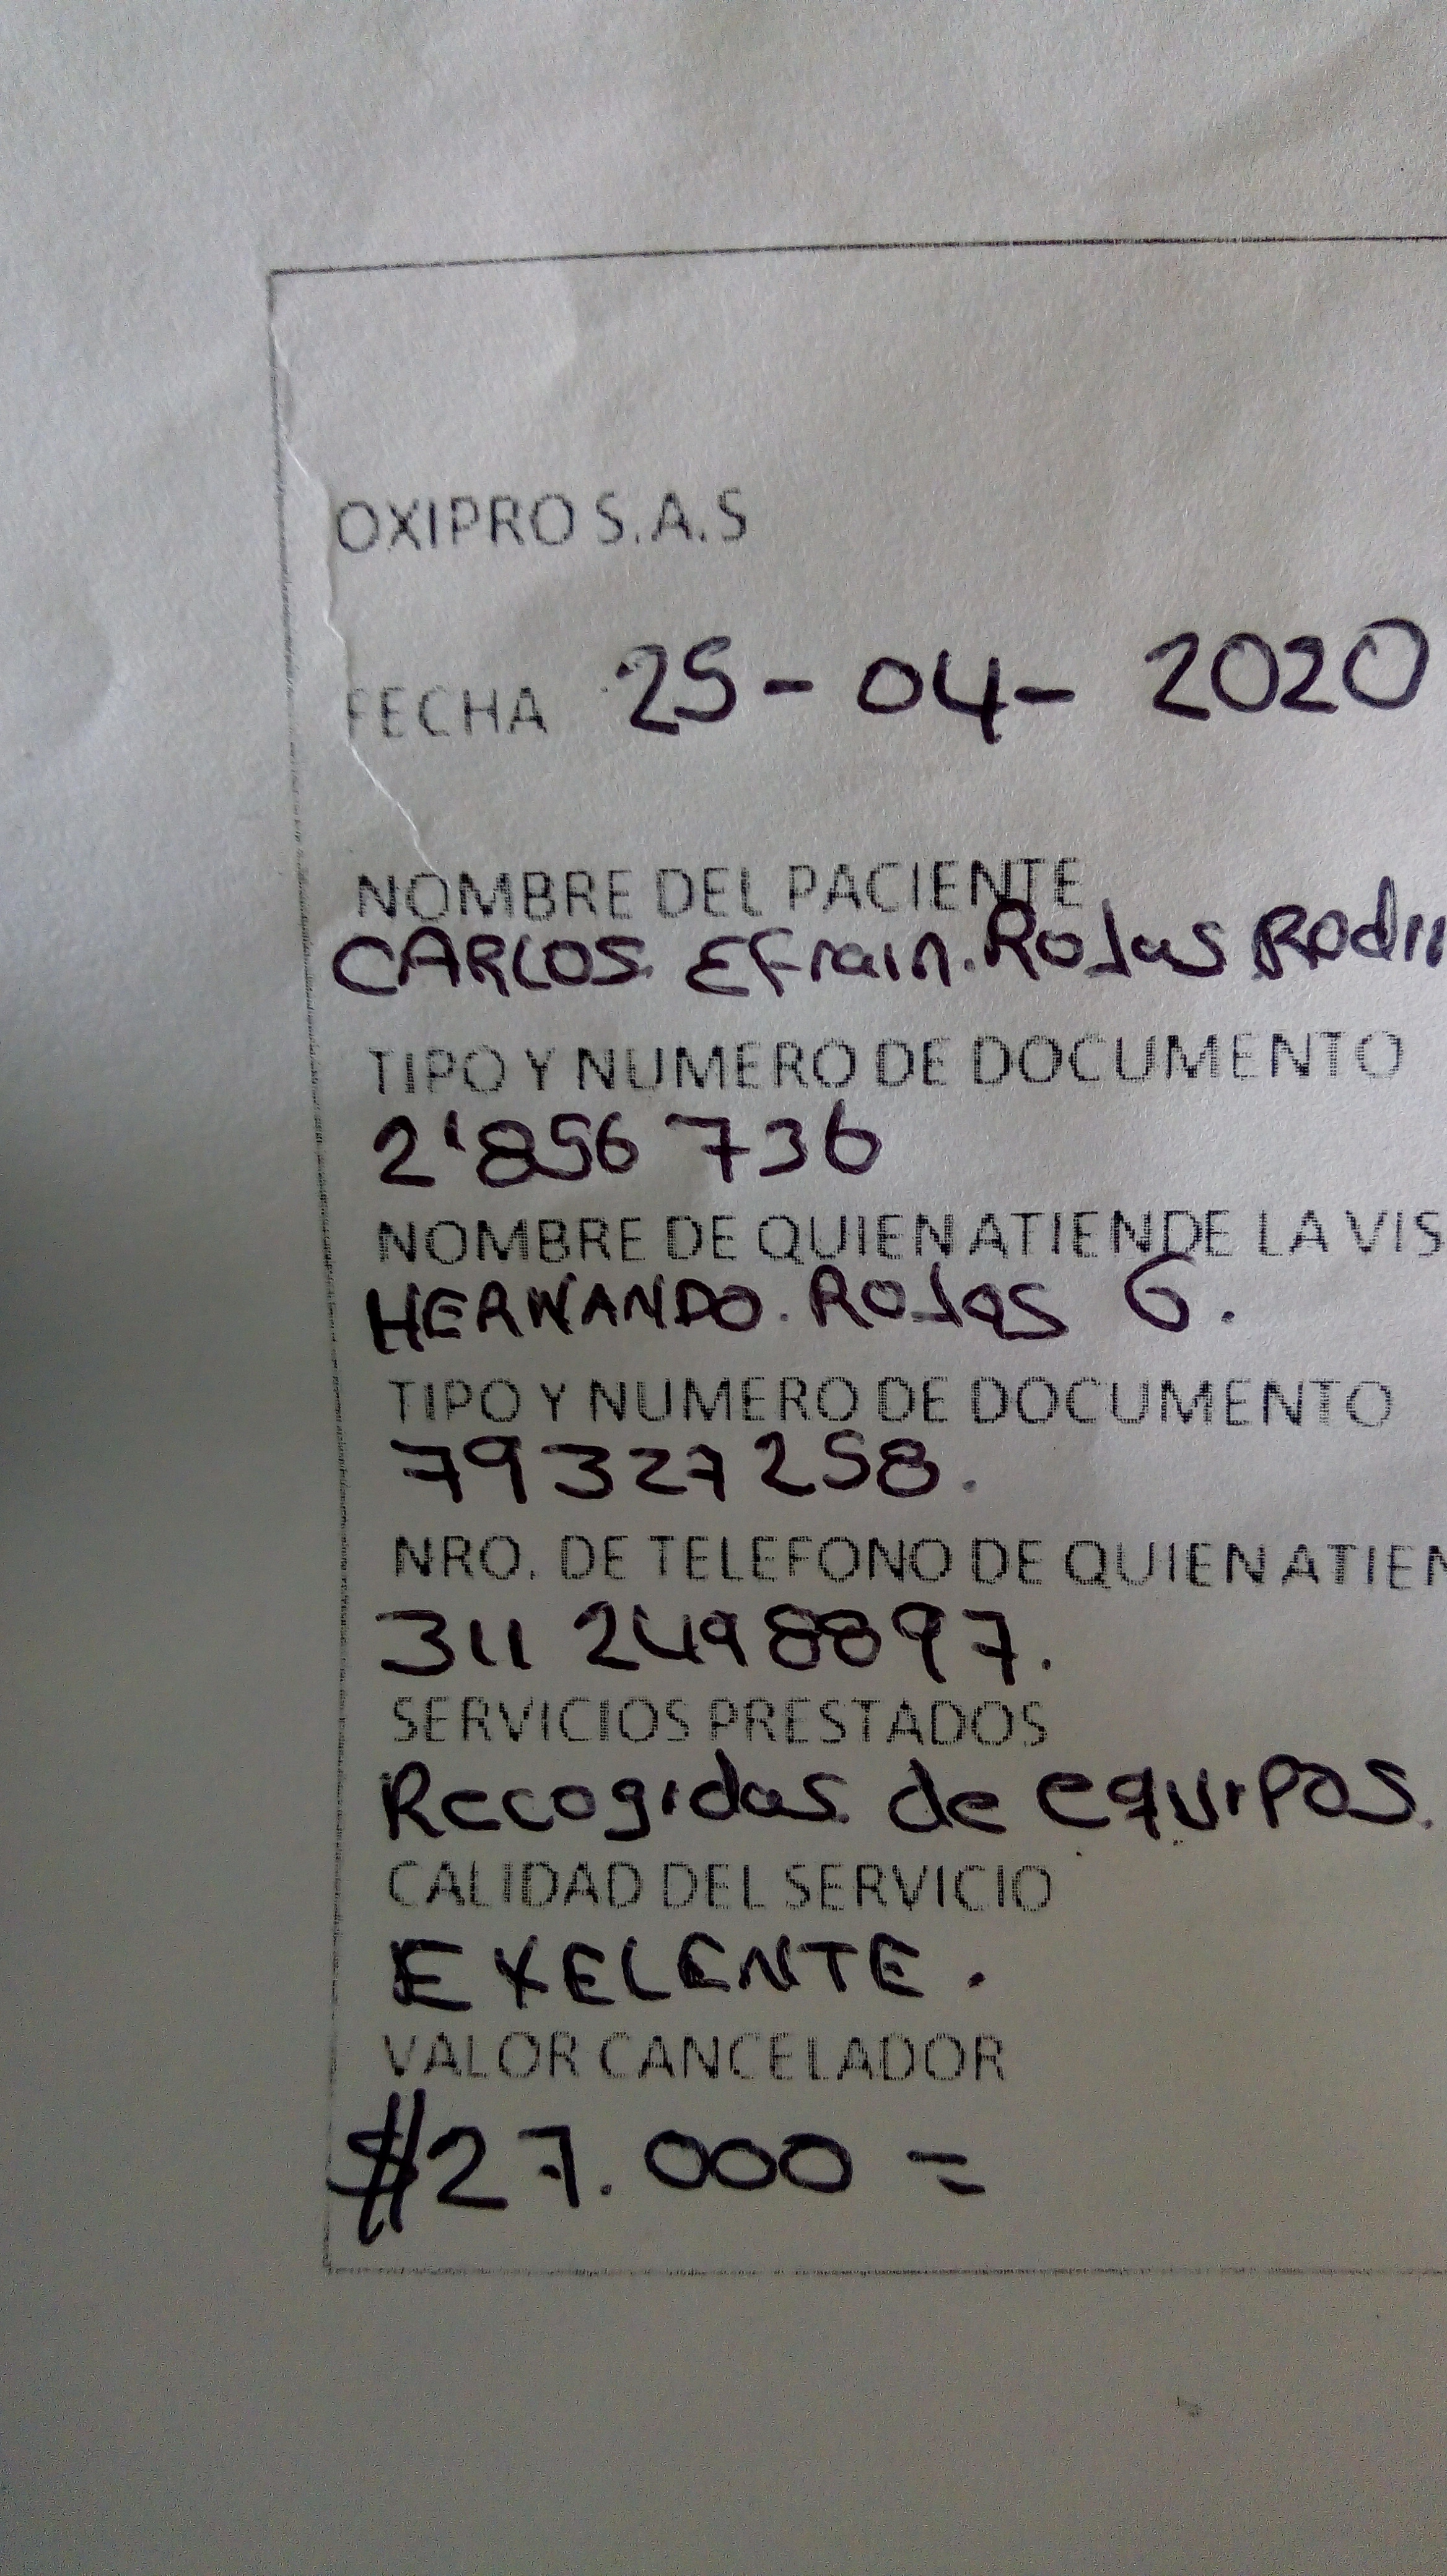 OXIPRO S.A.S
FECHA 25-04-2020
NOMBRE DEL PACIENTE
CARLOS Efrain. Rojas
TIPO Y NUMERO DE DOCUMENTO
2'856 736
NOMBRE DE QUIEN ATIENDE LA VIS
HERNANDO. Rojas G.
TIPO Y NUMERO DE DOCUMENTO
79327258.
NRO. DE TELEFONO DE QUIEN ATIEN
311 2498897.
SERVICIOS PRESTADOS
Recogidas de equipos.
CALIDAD DEL SERVICIO
EXELENTE.
VALOR CANCELADOR
$27.000=